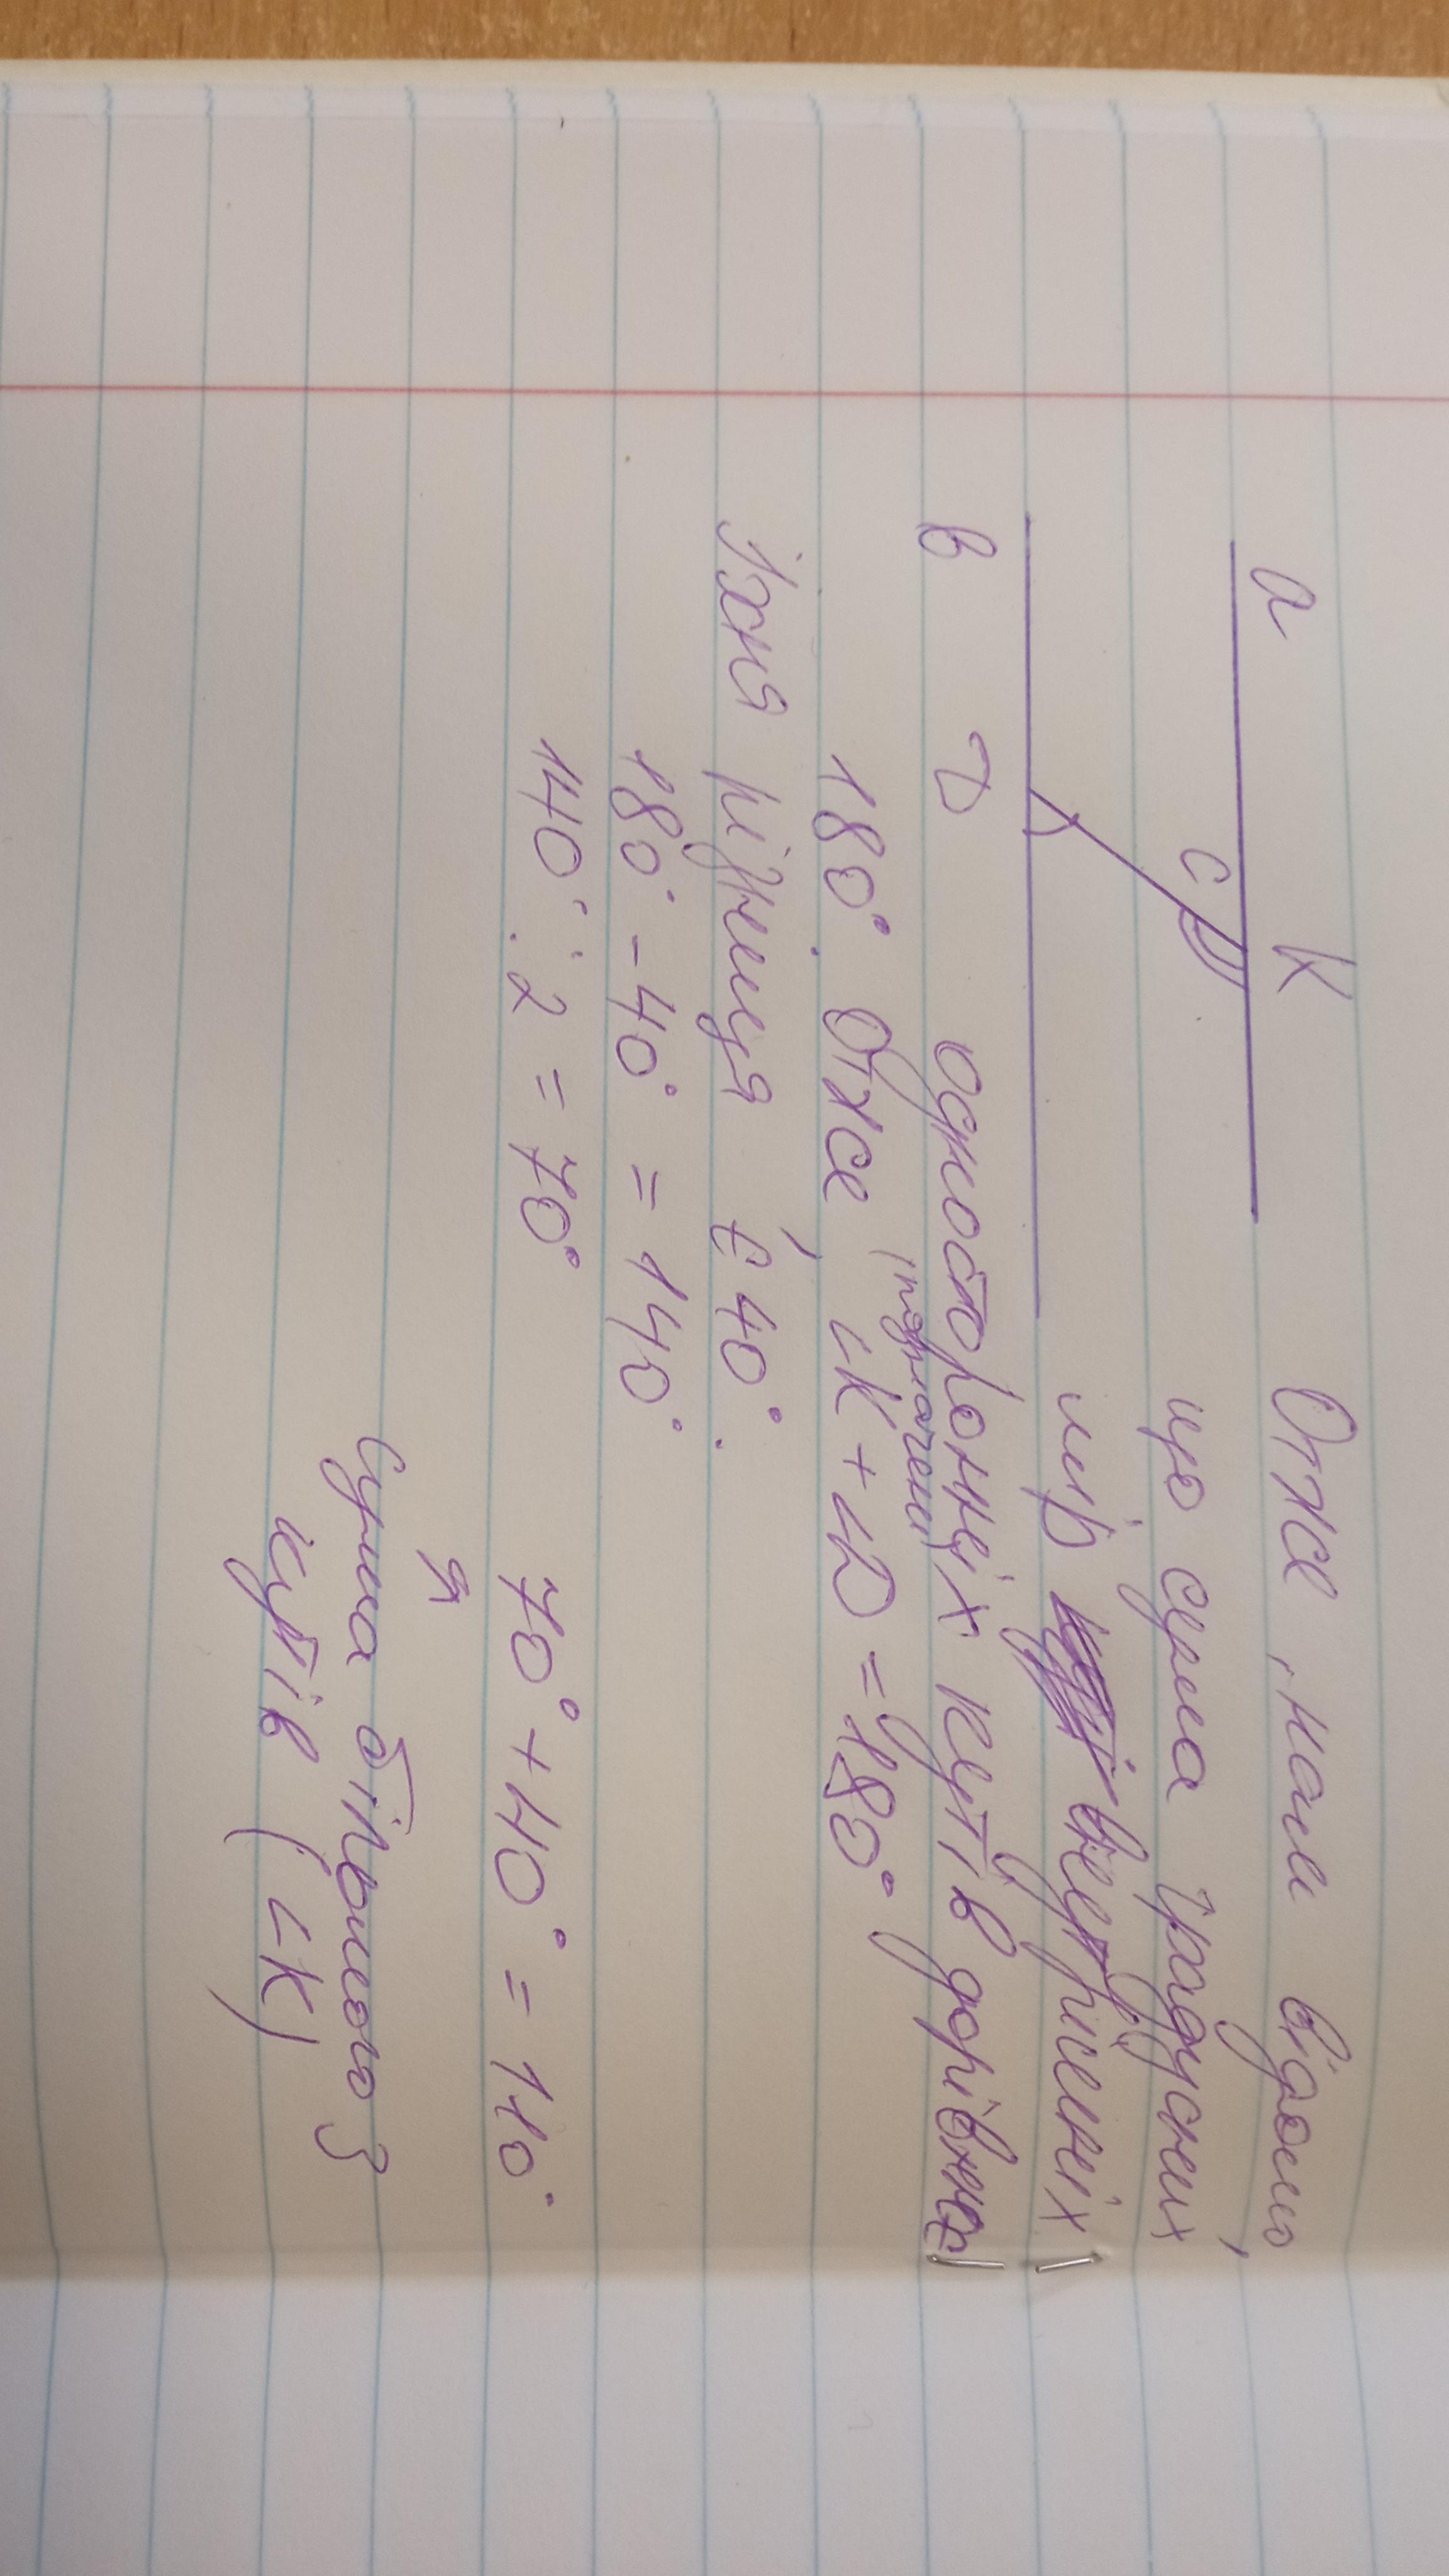 a К Отже, нам відомо,
що сума градусних
с
мір внутрішніх
в D односторонніх кутів дорівнює
позначені
180°. Отже, ∠К + ∠D = 180°
Їхня різниця є 40°.
180° - 40° = 140°
140° : 2 = 70° 70° + 40° = 110°
Я
Сума більшого з
кутів (∠К)